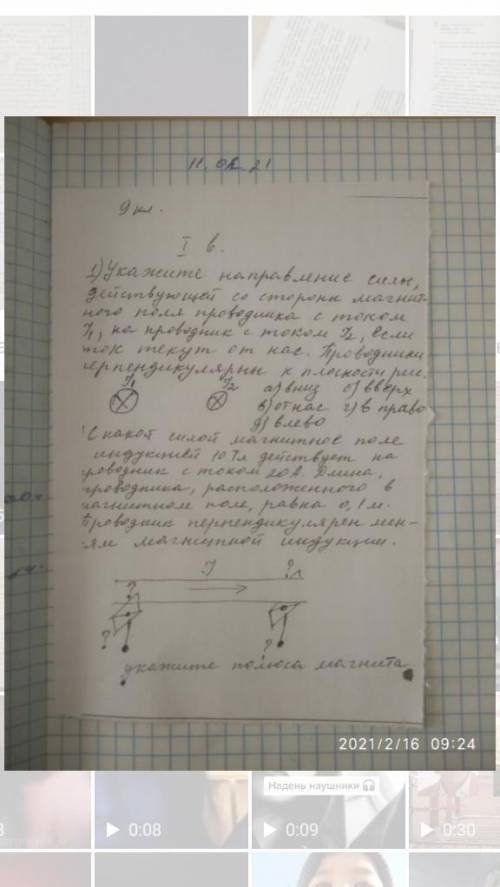 11. 02. 21
9 кл.
I в.
1) Укажите направление силы,
действующей со стороны магнит-
ного поля проводника с током
I₁, на проводник с током I₂, если
ток текут от нас. Проводники
перпендикулярны к плоскости рис.
I₁ I₂ а) вниз б) вверх
в) от нас г) вправо
д) влево
С какой силой магнитное поле
индукцией 10 Тл действует на
проводник с током 20А. Длина,
проводника, расположенного в
магнитном поле, равна 0,1 м.
Проводник перпендикулярен лен-
ям магнитной индукции.
I ?
?
? ?
укажите полюса магнита
2021/2/16 09:24
Надень наушники 🎧
0:08
0:09
0:30